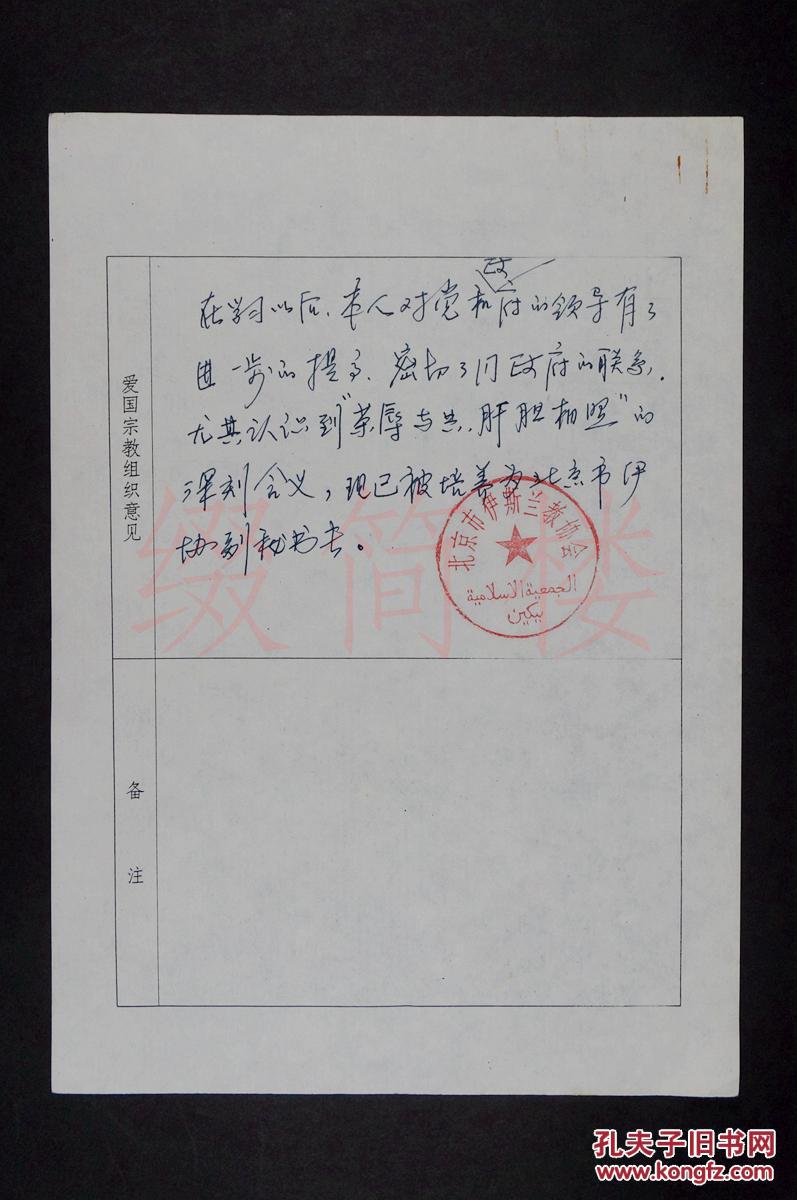 爱国宗教组织意见
政
在学习以后、本人对党和府的领导有了
进一步的提高、密切了同政府的联系,
尤其认识到“荣辱与共,肝胆相照”的
深刻含义,现已被培养为北京市伊
协副秘书长。
北京市伊斯兰教协会
الجمعية الاسلامية
بيكين
缀简楼
备注
孔夫子旧书网
www.kongfz.com